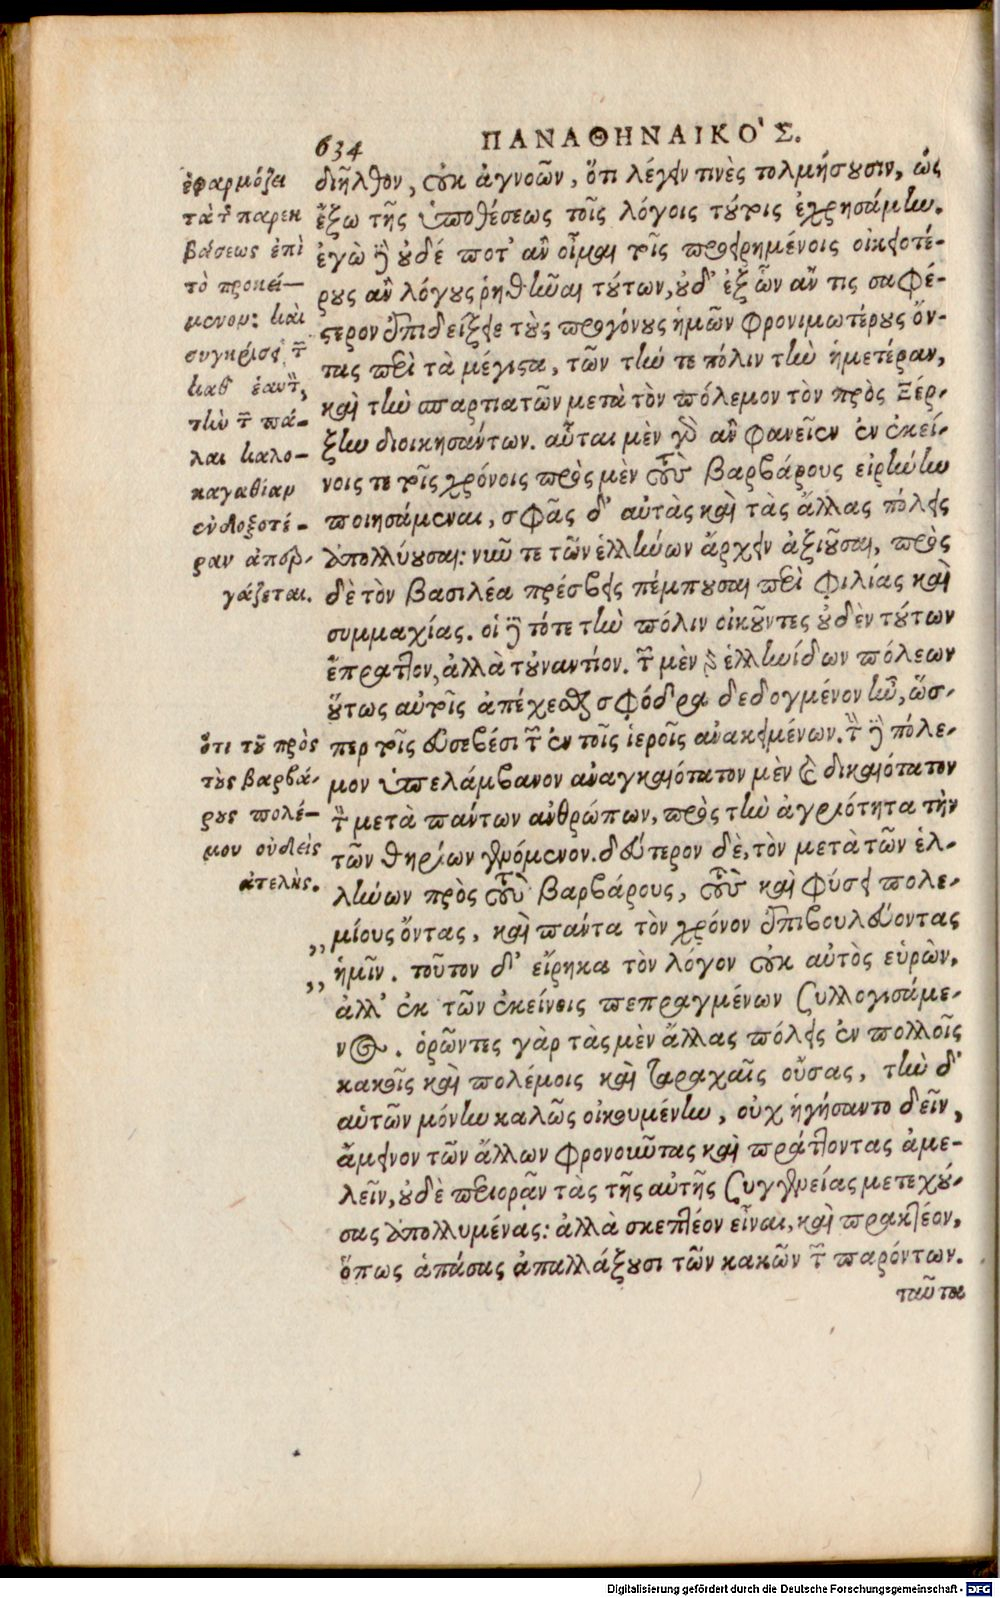 634 ΠΑΝΑΘΗΝΑΙΚΟ'Σ.
διῆλθον, οὐκ ἀγνοῶν, ὅτι λέγειν τινὲς τολμήσουσιν, ὡς
ἔξω τῆς ὑποθέσεως τοῖς λόγοις τούτοις ἐχρησάμην.
ἐγὼ δὲ οὐδέ ποτ' ἂν οἶμαι τοῖς προειρημένοις οἰκειοτέ-
ρους ἂν λόγους ῥηθῆναι τούτων, οὐδ' ἐξ ὧν ἄν τις σαφέ-
στερον ἐπιδείξειε τοὺς προγόνους ἡμῶν φρονιμωτέρους ὄν-
τας περὶ τὰ μέγιστα, τῶν τήν τε πόλιν τὴν ἡμετέραν,
καὶ τὴν σπαρτιατῶν μετὰ τὸν πόλεμον τὸν πρὸς Ξέρ-
ξην διοικησάντων. αὗται μὲν γὸ ἂν φανεῖεν ἐν ἐκεί-
νοις τε τοῖς χρόνοις πρὸς μὲν τοὺς βαρβάρους εἰρήνην
ποιησάμεναι, σφᾶς δ' αὐτὰς καὶ τὰς ἄλλας πόλεις
ἀπολλύουσαι: νῦν τε τῶν ἑλλήνων ἄρχειν ἀξιοῦσαι, πρὸς
δὲ τὸν βασιλέα πρέσβεις πέμπουσαι περὶ φιλίας καὶ
συμμαχίας. οἱ δὲ τότε τὴν πόλιν οἰκοῦντες οὐδὲν τούτων
ἔπραττον, ἀλλὰ τοὐναντίον. τῶν μὲν γὸ ἑλληνίδων πόλεων
οὕτως αὐτοῖς ἀπέχεσθαι σφόδρα δεδογμένον ἦν, ὥσ-
περ τοῖς εὐσεβέσι τῶν ἐν τοῖς ἱεροῖς ἀνακειμένων. τὸν δὲ πόλε-
μον ὑπελάμβανον ἀναγκαιότατον μὲν καὶ δικαιότατον
τὸν μετὰ πάντων ἀνθρώπων, πρὸς τὴν ἀγριότητα τὴν
τῶν θηρίων γινόμενον. δεύτερον δὲ, τὸν μετὰ τῶν ἑλ-
λήνων πρὸς τοὺς βαρβάρους, τοὺς καὶ φύσει πολε-
„ μίους ὄντας, καὶ πάντα τὸν χρόνον ἐπιβουλεύοντας
„ ἡμῖν. τοῦτον δ' εἴρηκα τὸν λόγον οὐκ αὐτὸς εὑρὼν,
ἀλλ' ἐκ τῶν ἐκείνοις πεπραγμένων συλλογισάμε-
νος. ὁρῶντες γὰρ τὰς μὲν ἄλλας πόλεις ἐν πολλοῖς
κακοῖς καὶ πολέμοις καὶ ταραχαῖς οὔσας, τὴν δ'
αὑτῶν μόνην καλῶς οἰκουμένην, οὐχ ἡγήσαντο δεῖν,
ἄμεινον τῶν ἄλλων φρονοῦντας καὶ πράττοντας ἀμε-
λεῖν, οὐδὲ περιορᾷν τὰς τῆς αὐτῆς συγγενείας μετεχού-
σας ἀπολλυμένας: ἀλλὰ σκεπτέον εἶναι, καὶ πρακτέον,
ὅπως ἁπάσας ἀπαλλάξουσι τῶν κακῶν τῶν παρόντων.
ταῦτα
ἐφαρμόζει
τὰ τῆς παρεκ
βάσεως ἐπὶ
τὸ προκεί-
μενον: καὶ
συγκρίσει τῶν
καθ' ἑαυτὸν,
τὴν τῶν πά-
λαι καλο-
καγαθίαν
ἐνδοξοτέ-
ραν ἀπερ-
γάζεται.
ὅτι τοῦ πρὸς
τοὺς βαρβά-
ρους πολέ-
μου οὐδεὶς
ἀτελής.
Digitalisierung gefördert durch die Deutsche Forschungsgemeinschaft - DFG